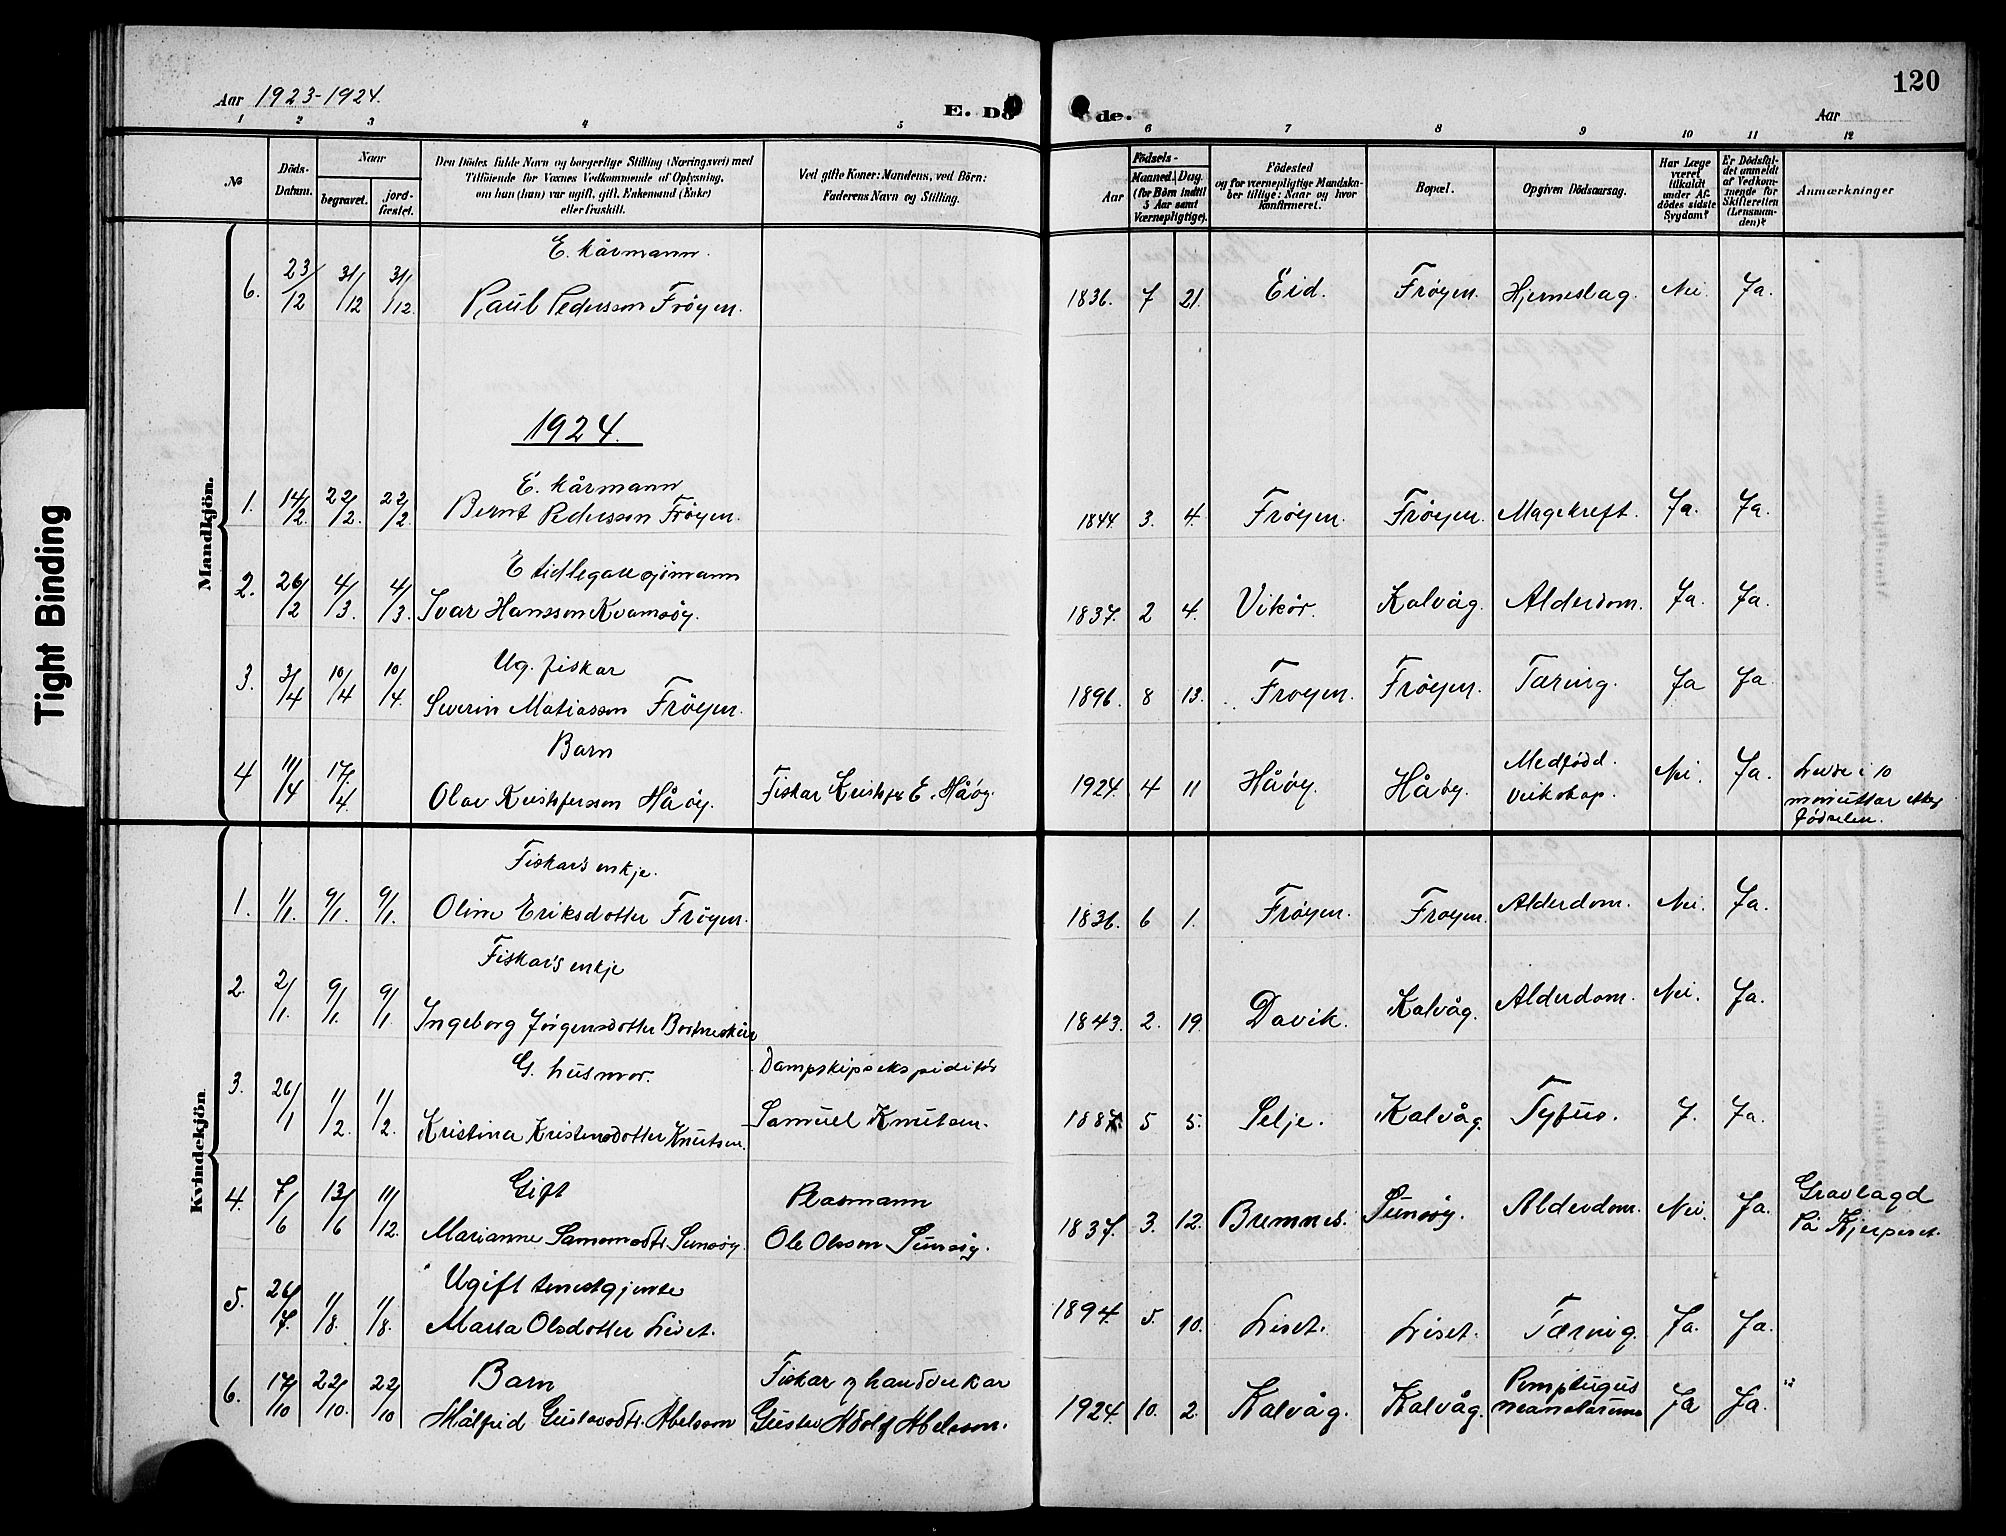 Aar 1923-1924.
E. Döde.
Aar
120
1 2 3 4 5 6 7 8 9 10 11 12
No
Döds-Datum.
Naar
begravet.
jord-fæstet.
Den Dödes fulde Navn og borgerlige Stilling (Næringsvei) med
Tilföiende for Voxnes Vedkommende af Oplysning,
om hun (han) var ugift, gift, Enkemand (Enke)
eller fraskilt.
Ved gifte Koner: Mandens, ved Börn:
Faderens Navn og Stilling.
Födsels-
Aar
Maaned. Dag
(for Börn indtil
5 Aar samt
Værnepligtige).
Födested
og for værnepligtige Mandska-
ber tillige: Naar og hvor
konfirmeret.
Bopæl.
Opgiven Dödsaarsag.
Har Læge
været
tilkaldt
under Af-
dödes sidste
Sygdom?
Er Dödsfal-
det anmeldt
af Vedkom-
mende for
Skifteretten
(Lensman-
den)?
Anmærkninger
Mandkjön.
E. Kårmann.
6. 23/12 31/12 31/12 Paul Pedersson Fröyen. 1836. 7 21. Eid. Fröyen. Hjerneslag. Nei. Ja.
1924.
E. Kårmann
1. 14/2. 22/2. 22/2 Bernt Pedersson Fröyen. 1844. 3. 4. Fröyen. Fröyen. Magekreft. Ja. Ja.
E tidlegare sjömann
2. 26/2 4/3. 4/3. Ivar Hansson Kvamsöy. 1837. 2 4. Vikör. Kalvåg. Alderdom. Ja. Ja.
Ug. fiskar
3. 3/4 10/4 10/4. Severin Matiasson Fröyen. 1896. 8 13. Froyen. Fröyen. Tæring. Ja Ja.
Barn
4 11/4 17/4. Olav Kristofersson Håöy. Fiskar Kristofer E. Håöy. 1924. 4 11 Håöy. Håöy. Medfødd veikskap. Nei. Ja. Levde i 10
minuttar etter
fødselen.
Kvindekjön
Fiskar's enkje.
1. 1/1. 9/1. 9/1. Oline Eriksdotter Fröyen. 1836. 6 1. Fröyen. Froyen. Alderdom. Nei. Ja.
Fiskar's enkje
2. 2/1. 9/1. 9/1 Ingeborg Jörgensdotter 1843. 2. 19. Davik. Kalvåg. Alderdom. Nei. Ja.
G. husmor. Dampskipsekspeditör
3. 26/1 1/2. 1/2. Kristina Kristensdotter Knutsen. Samuel Knutsen. 1887. 5 5. Selje. Kalvåg. Tyfus. J. Ja.
Gift Plasmann
4. 7/6 13/6 11/12. Marianne Samsonsdtr. Sunsöy. Ole Olsson Sunsöy. 1837. 3. 12. Bremnes. Sunsöy. Alderdom. Nei. Ja. Gravlagd
På Kjerpeset.
Ugift tenestgjente
5. 26/7. 1/8. 1/8. Marta Olsdotter Liset. 1894. 5. 10. Liset. Liset. Tæring. Ja. Ja.
Barn Fiskar og handverkar
6. 17/10 22/10. 22/10 Målfrid Gustavsdtr. Abelsson Gustav Adolf Abelsson. 1924. 10. 2. Kalvåg. Kalvåg. Pemphigus neonatorum Ja Ja. "
Tight Binding